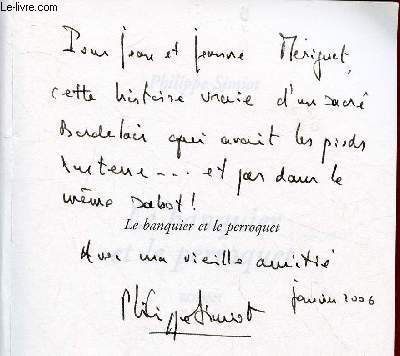 Le-livre.com
Pour Jean et Jeanne Mériguet,
cette histoire vraie d'un sacré
Bordelais qui avait les pieds
sur terre --- et pas dans le
même sabot !
Le banquier et le perroquet
Avec ma vieille amitié
Philippe Simiot
janvier 2006